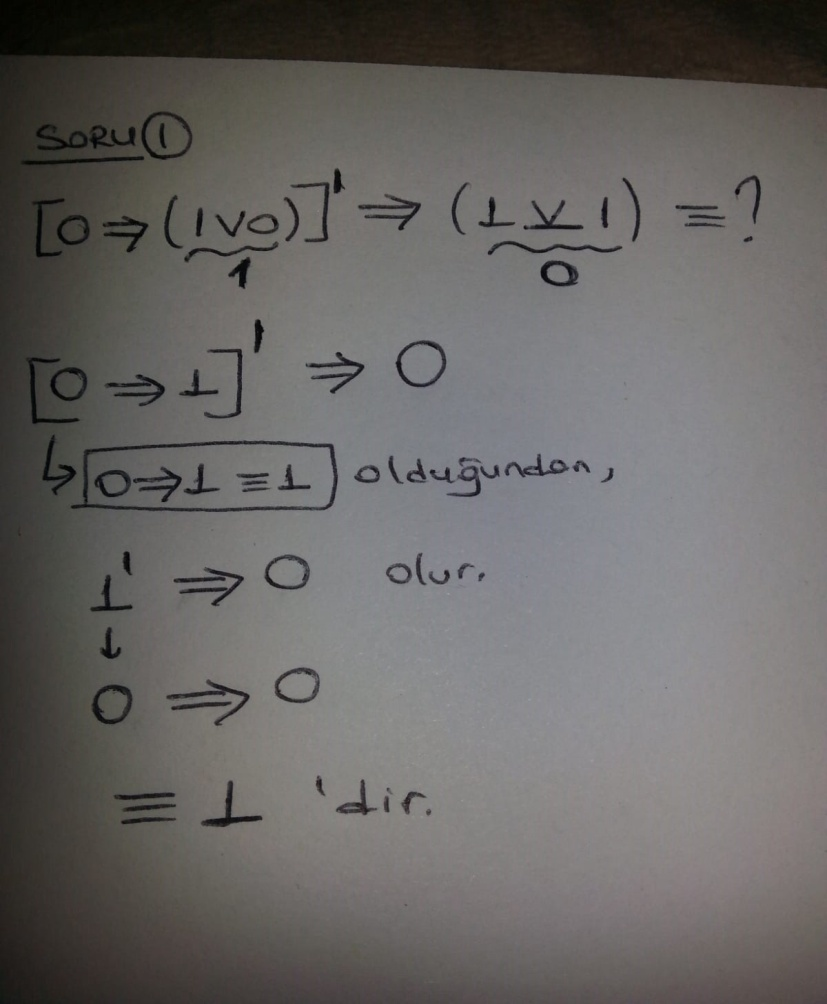 SORU ①
[0 ⇒ (1 ∨ 0)]' ⇒ (1 ⊻ 1) ≡ ?
1 0
[0 ⇒ 1]' ⇒ 0
↳ 0 ⇒ 1 ≡ 1 olduğundan,
1' ⇒ 0 olur.
↓
0 ⇒ 0
≡ 1 'dir.